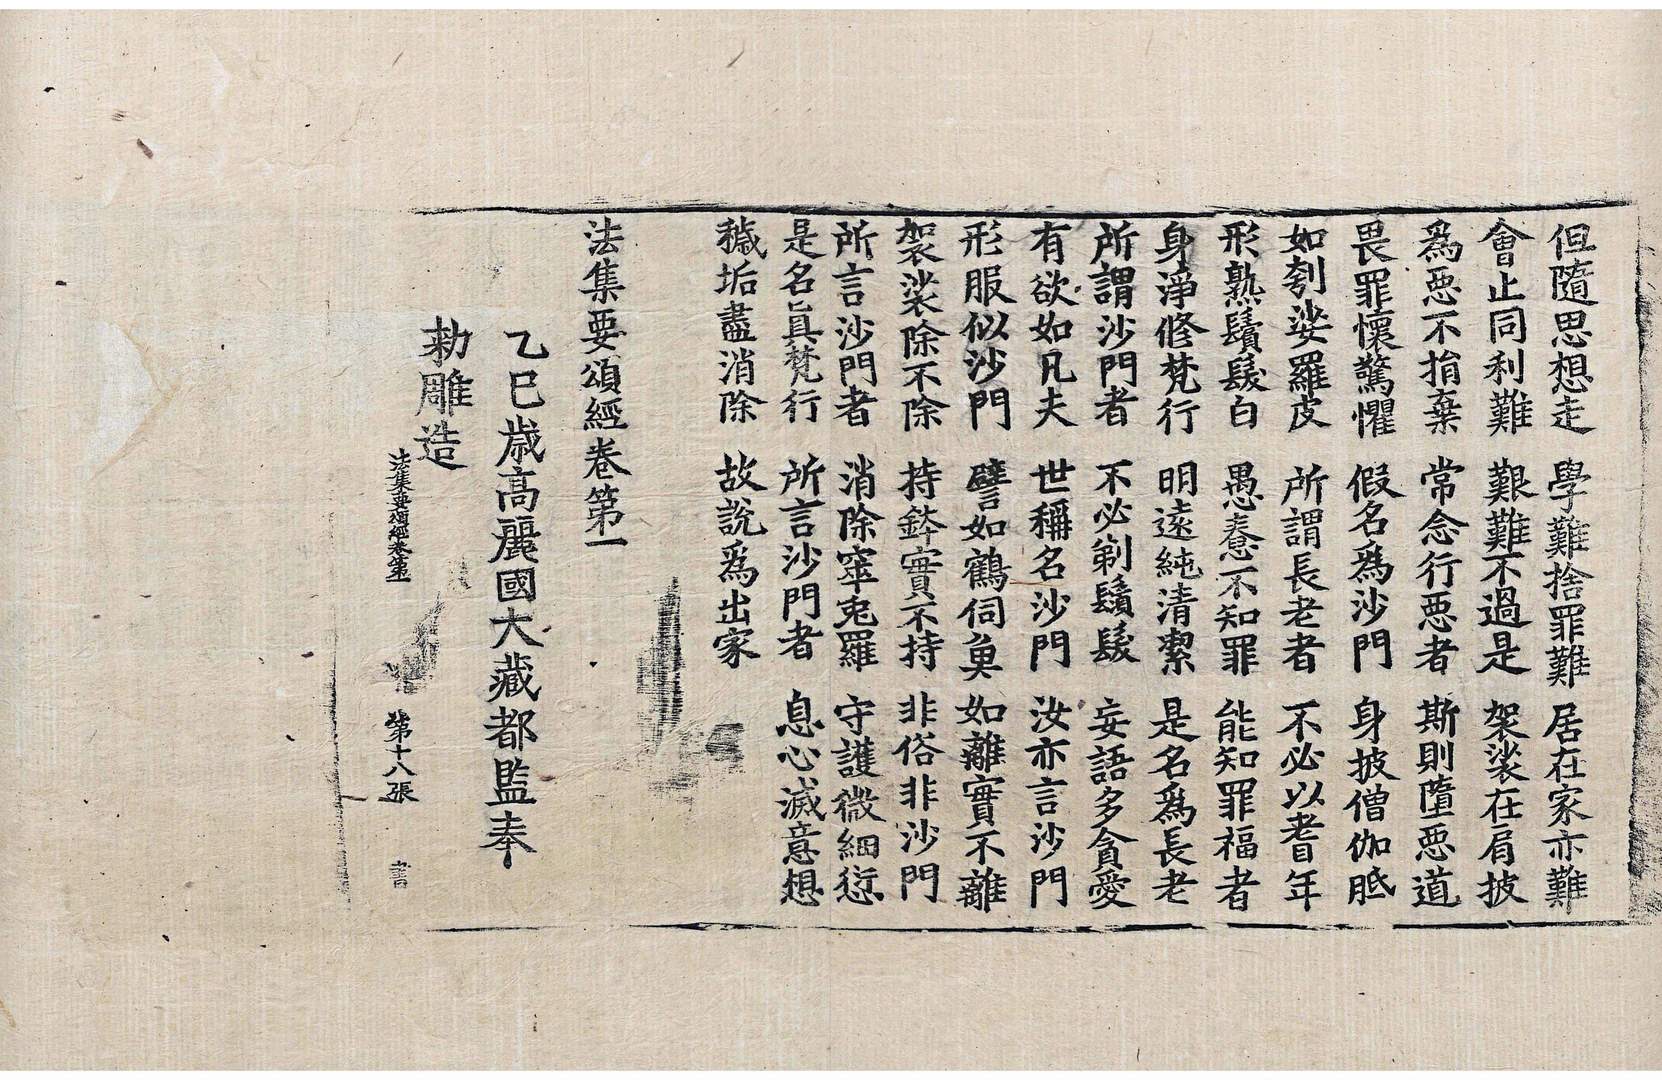 但隨思想走 學難捨罪難 居在家亦難
會止同利難 艱難不過是 袈裟在肩披
爲惡不捐棄 常念行惡者 斯則墮惡道
畏罪懷驚懼 假名爲沙門 身披僧伽胝
如刳娑羅皮 所謂長老者 不必以耆年
形熟鬚髮白 愚惷不知罪 能知罪福者
身淨修梵行 明遠純清潔 是名爲長老
所謂沙門者 不必剃鬚髮 妄語多貪愛
有欲如凡夫 世稱名沙門 汝亦言沙門
形服似沙門 譬如鶴伺魚 如離實不離
袈裟除不除 持鉢實不持 非俗非沙門
所言沙門者 消除穽兔羅 守護微細愆
是名眞梵行 所言沙門者 息心滅意想
穢垢盡消除 故說爲出家
法集要頌經卷第一
乙巳歲高麗國大藏都監奉
勅雕造
法集要頌經卷第一 第十八張